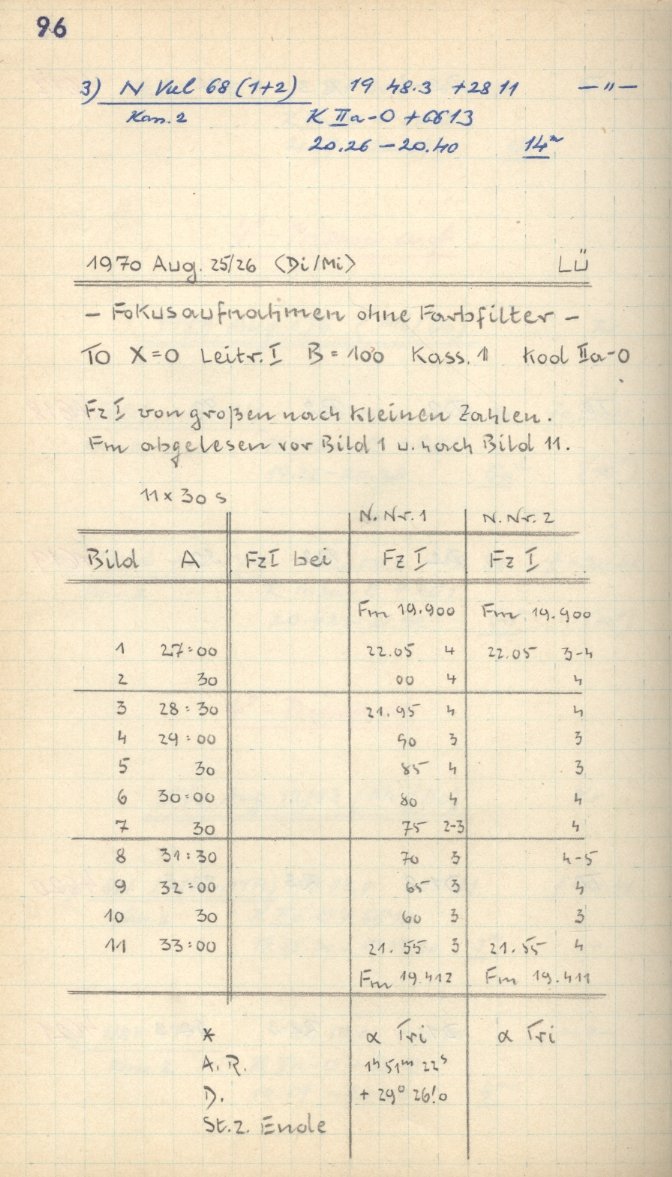 96
3) N Vul 68 (1+2) 19 48.3 +28 11 — " —
Kass. 2 K IIa-O +6613
20.26 – 20.40 14m
1970 Aug. 25/26 (Di/Mi) LÜ
– Fokusaufnahmen ohne Farbfilter –
TO X=0 Leitr. I B = 100 Kass. 1 Kod IIa-O
Fz I von großen nach kleinen Zahlen.
Fm abgelesen vor Bild 1 u. nach Bild 11.
11 × 30 s
N. Nr. 1 N. Nr. 2
Bild A FzI bei Fz I Fz I
Fm 19.900 Fm 19.900
1 27:00 22.05 4 22.05 3-4
2 30 00 4 4
3 28:30 21.95 4 4
4 29:00 90 3 3
5 30 85 4 3
6 30:00 80 4 4
7 30 75 2-3 4
8 31:30 70 3 4-5
9 32:00 65 3 4
10 30 60 3 3
11 33:00 21.55 3 21.55 4
Fm 19.412 Fm 19.411
* α Tri α Tri
A.R. 1h 51m 22s
D. + 29° 26!0
St.z. Ende